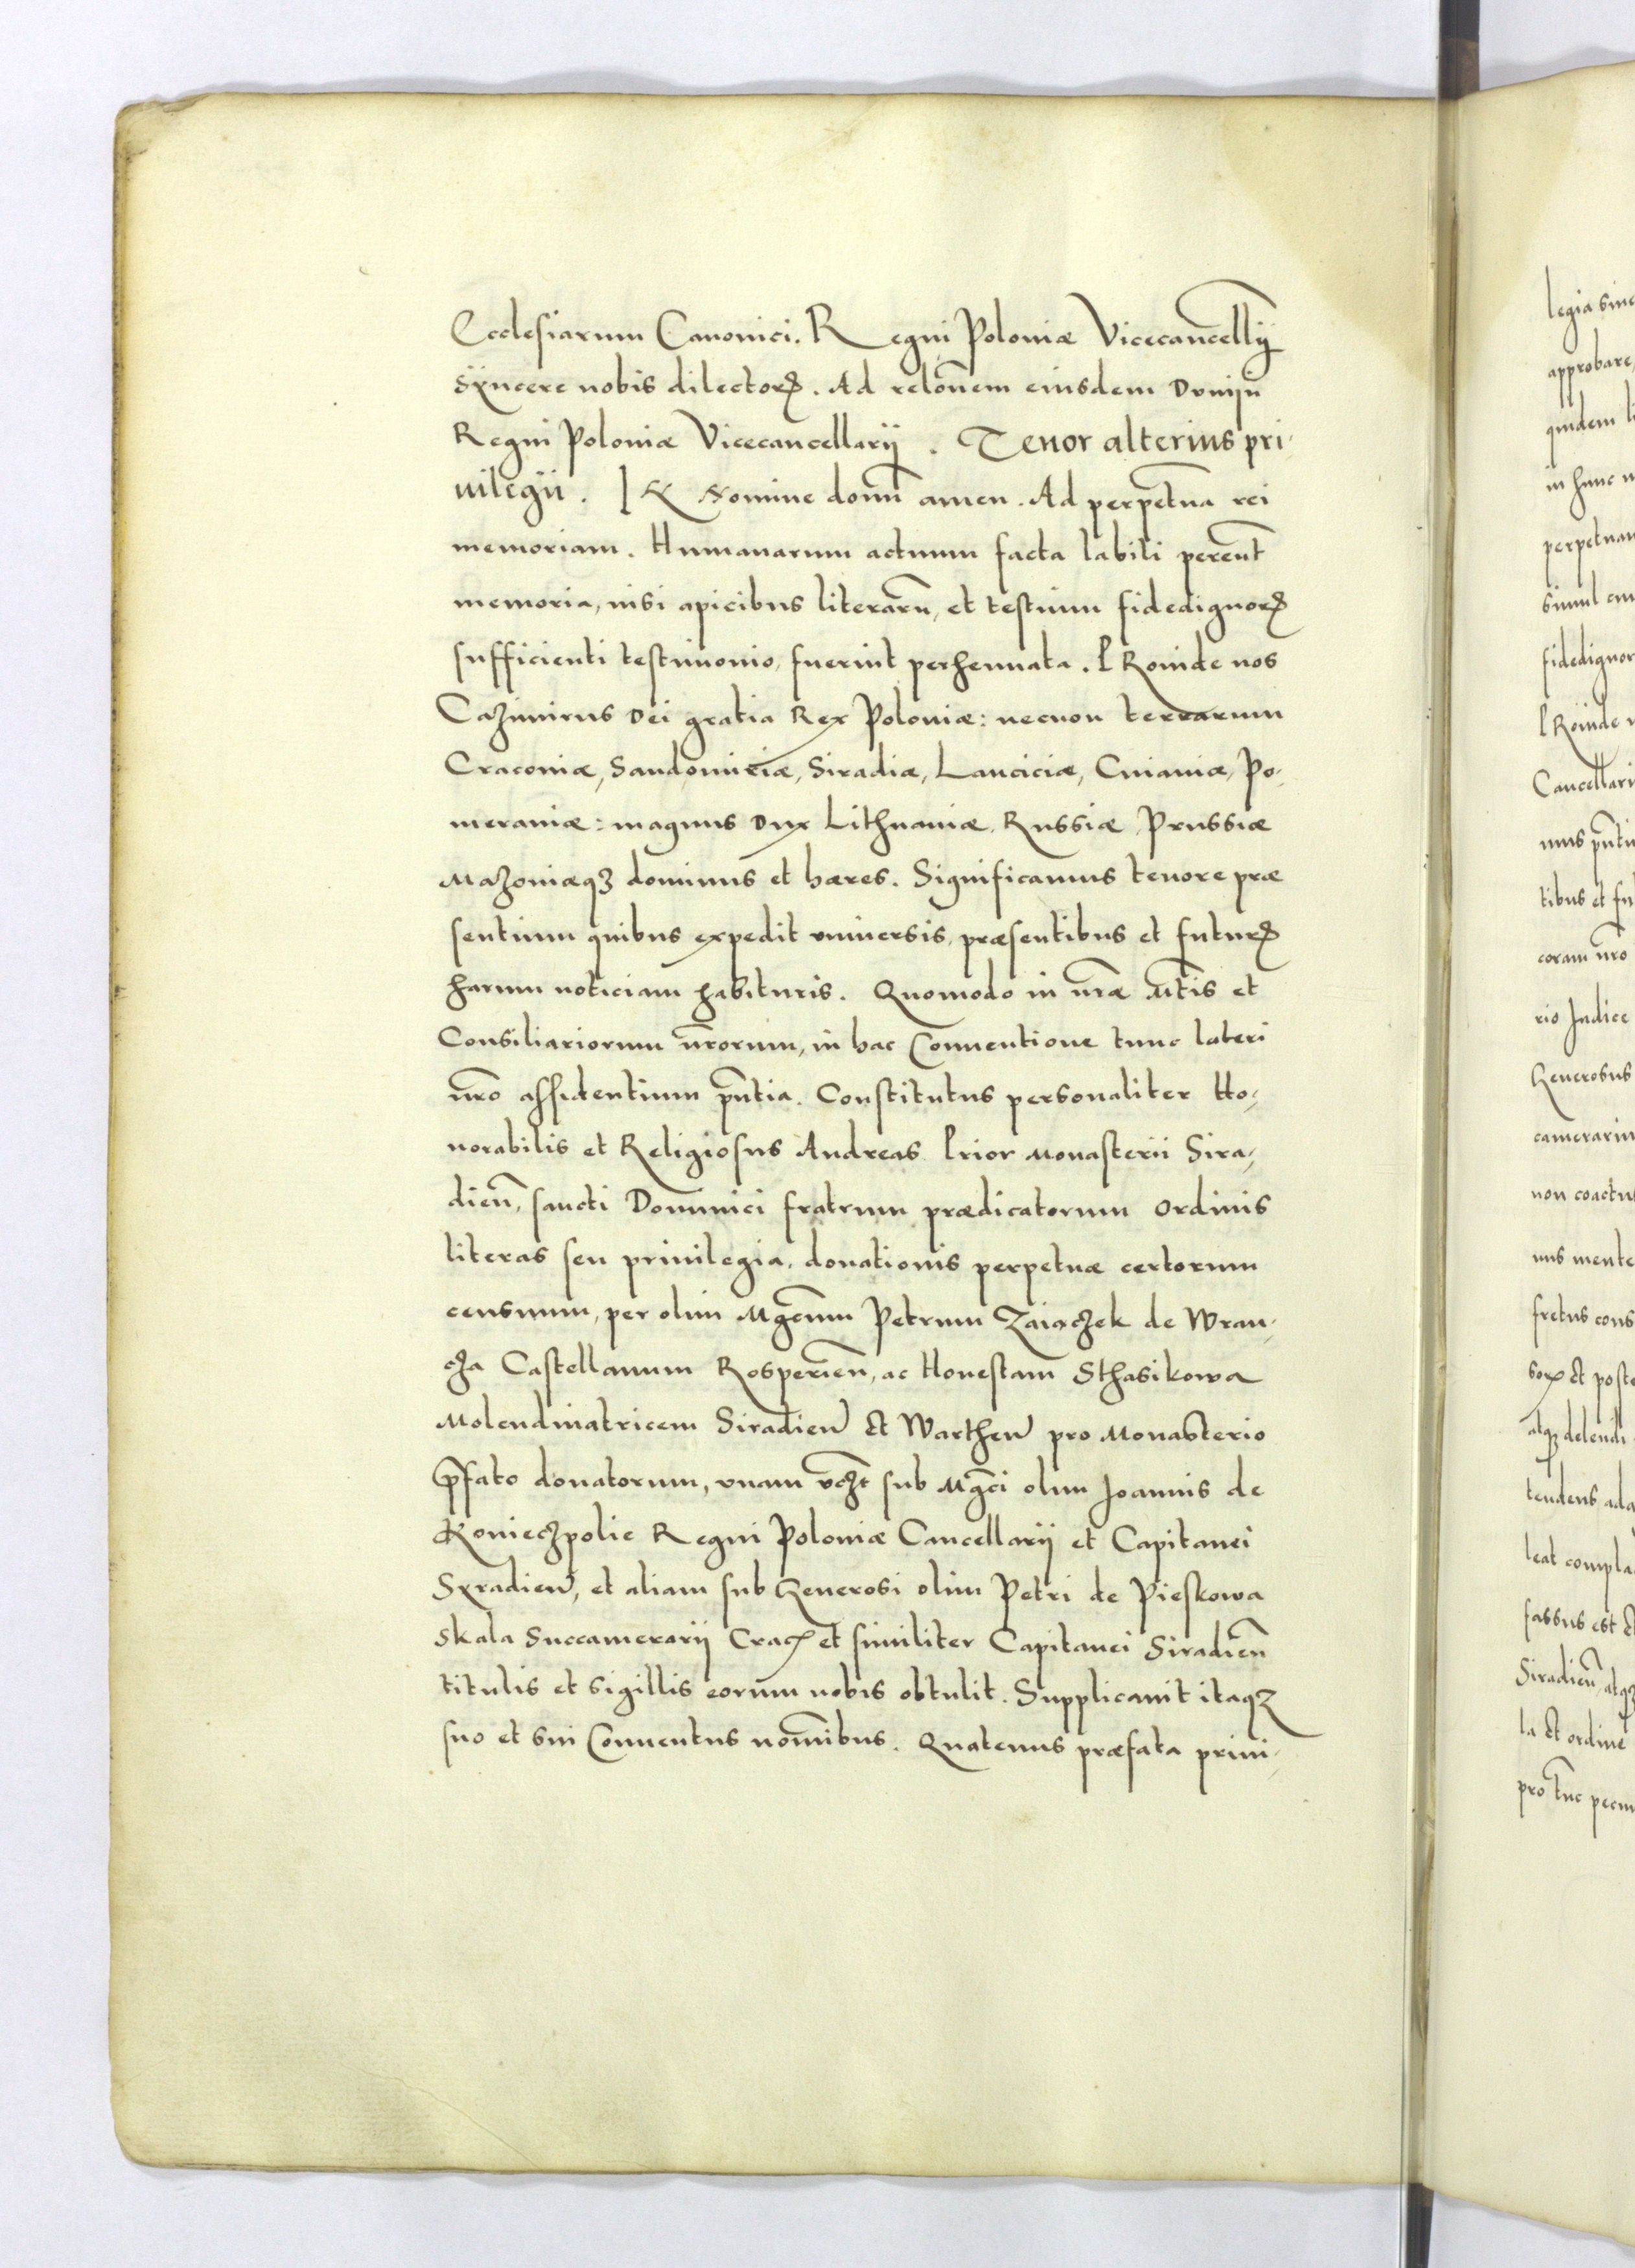 Ecclesiarum Canonici. Regni Poloniæ Vicecancellĩj
sÿncere nobis dilectorꝝ. Ad relõnem eiusdem Dvnijn
Regni Poloniæ Vicecancellarij. Tenor alterius pri-
uilegii. IN Nomine domĩ amen. Ad perpetũa rei
memoriam. Humanarum actuum facta labili pereũt
memoria, nisi apicibus literarũ, et testium fidedignorꝝ
sufficienti testimonio, fuerint perhennata. PRoinde nos
Cazimirus Dei gratia Rex Poloniæ: necnon terrarum
Cracouiæ, Sandomiriæ, Siradiæ, Lanciciæ, Cuiauiæ, Po-
meraniæ: magnus Dux Lithuaniæ, Russiæ, Prussiæ
Mazouiæqꝫ dominus et hæres. Significamus tenore præ
sentium quibus expedit vniuersis, præsentibus et futurꝝ
harum noticiam habituris. Quomodo in nr̃æ Mt̃is et
Consiliariorum nr̃orum, in hac Conuentione tunc lateri
nr̃o assidentium pñtia. Constitutus personaliter Ho-
norabilis et Religiosus Andreas Prior Monasterii Sira-
dieñ, sancti Dominici fratrum prædicatorum ordinis
literas seu priuilegia, donationis perpetuæ certorum
censuum, per olim Mgc̃um Petrum Zaiaczek de Wran-
cza Castellanum Rosperieñ, ac Honestam̃ Sthasikowa
Molendinatricem Siradieñ et Wartheñ pro Monasterio
p̃fato donatorum, vnam vcz̃t sub Mgc̃i olim Joannis de
Konieczpolie Regni Poloniæ Cancellarij et Capitanei
Syradieñ, et aliam sub Generosi olim Petri de Pieskowa
skala Succamerarij Cracꝭ et similiter Capitanei Siradieñ
titulis et sigillis eorum nobis obtulit. Supplicauit itaqꝫ
suo et sui Conuentus nom̃ibus. Quatenus præfata priui-
legia
approbare,
quidem
in hunc
perpetuam
simul
fidedignor
PRoinde
Cancellari
mus pñti
tibus et fu
coram nr̃o
rio Judice
Generosus
camerariu
non coactu
nus mente
fretus cons
et poste
atqꝫ delendi
tendens ada
leat compla
fassus est
Siradieñ, atqꝫ
la et ordine
pro tunc pecun